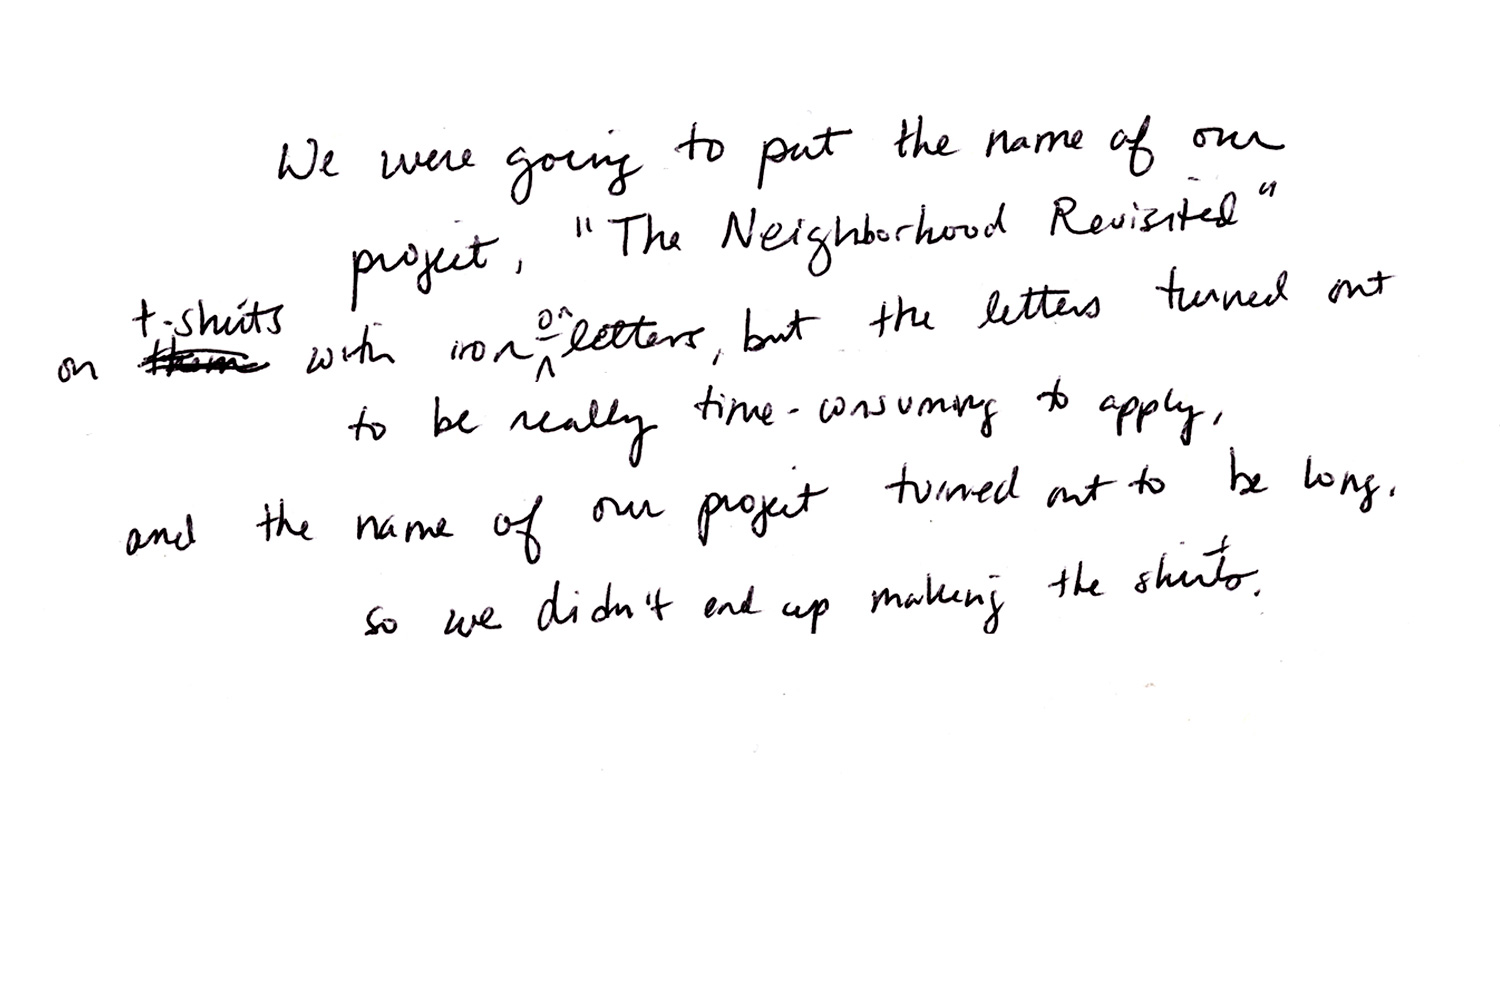 We were going to put the name of our
project, "The Neighborhood Revisited"
on t-shirts with iron-on letters, but the letters turned out
to be really time-consuming to apply,
and the name of our project turned out to be long,
so we didn't end up making the shirts.